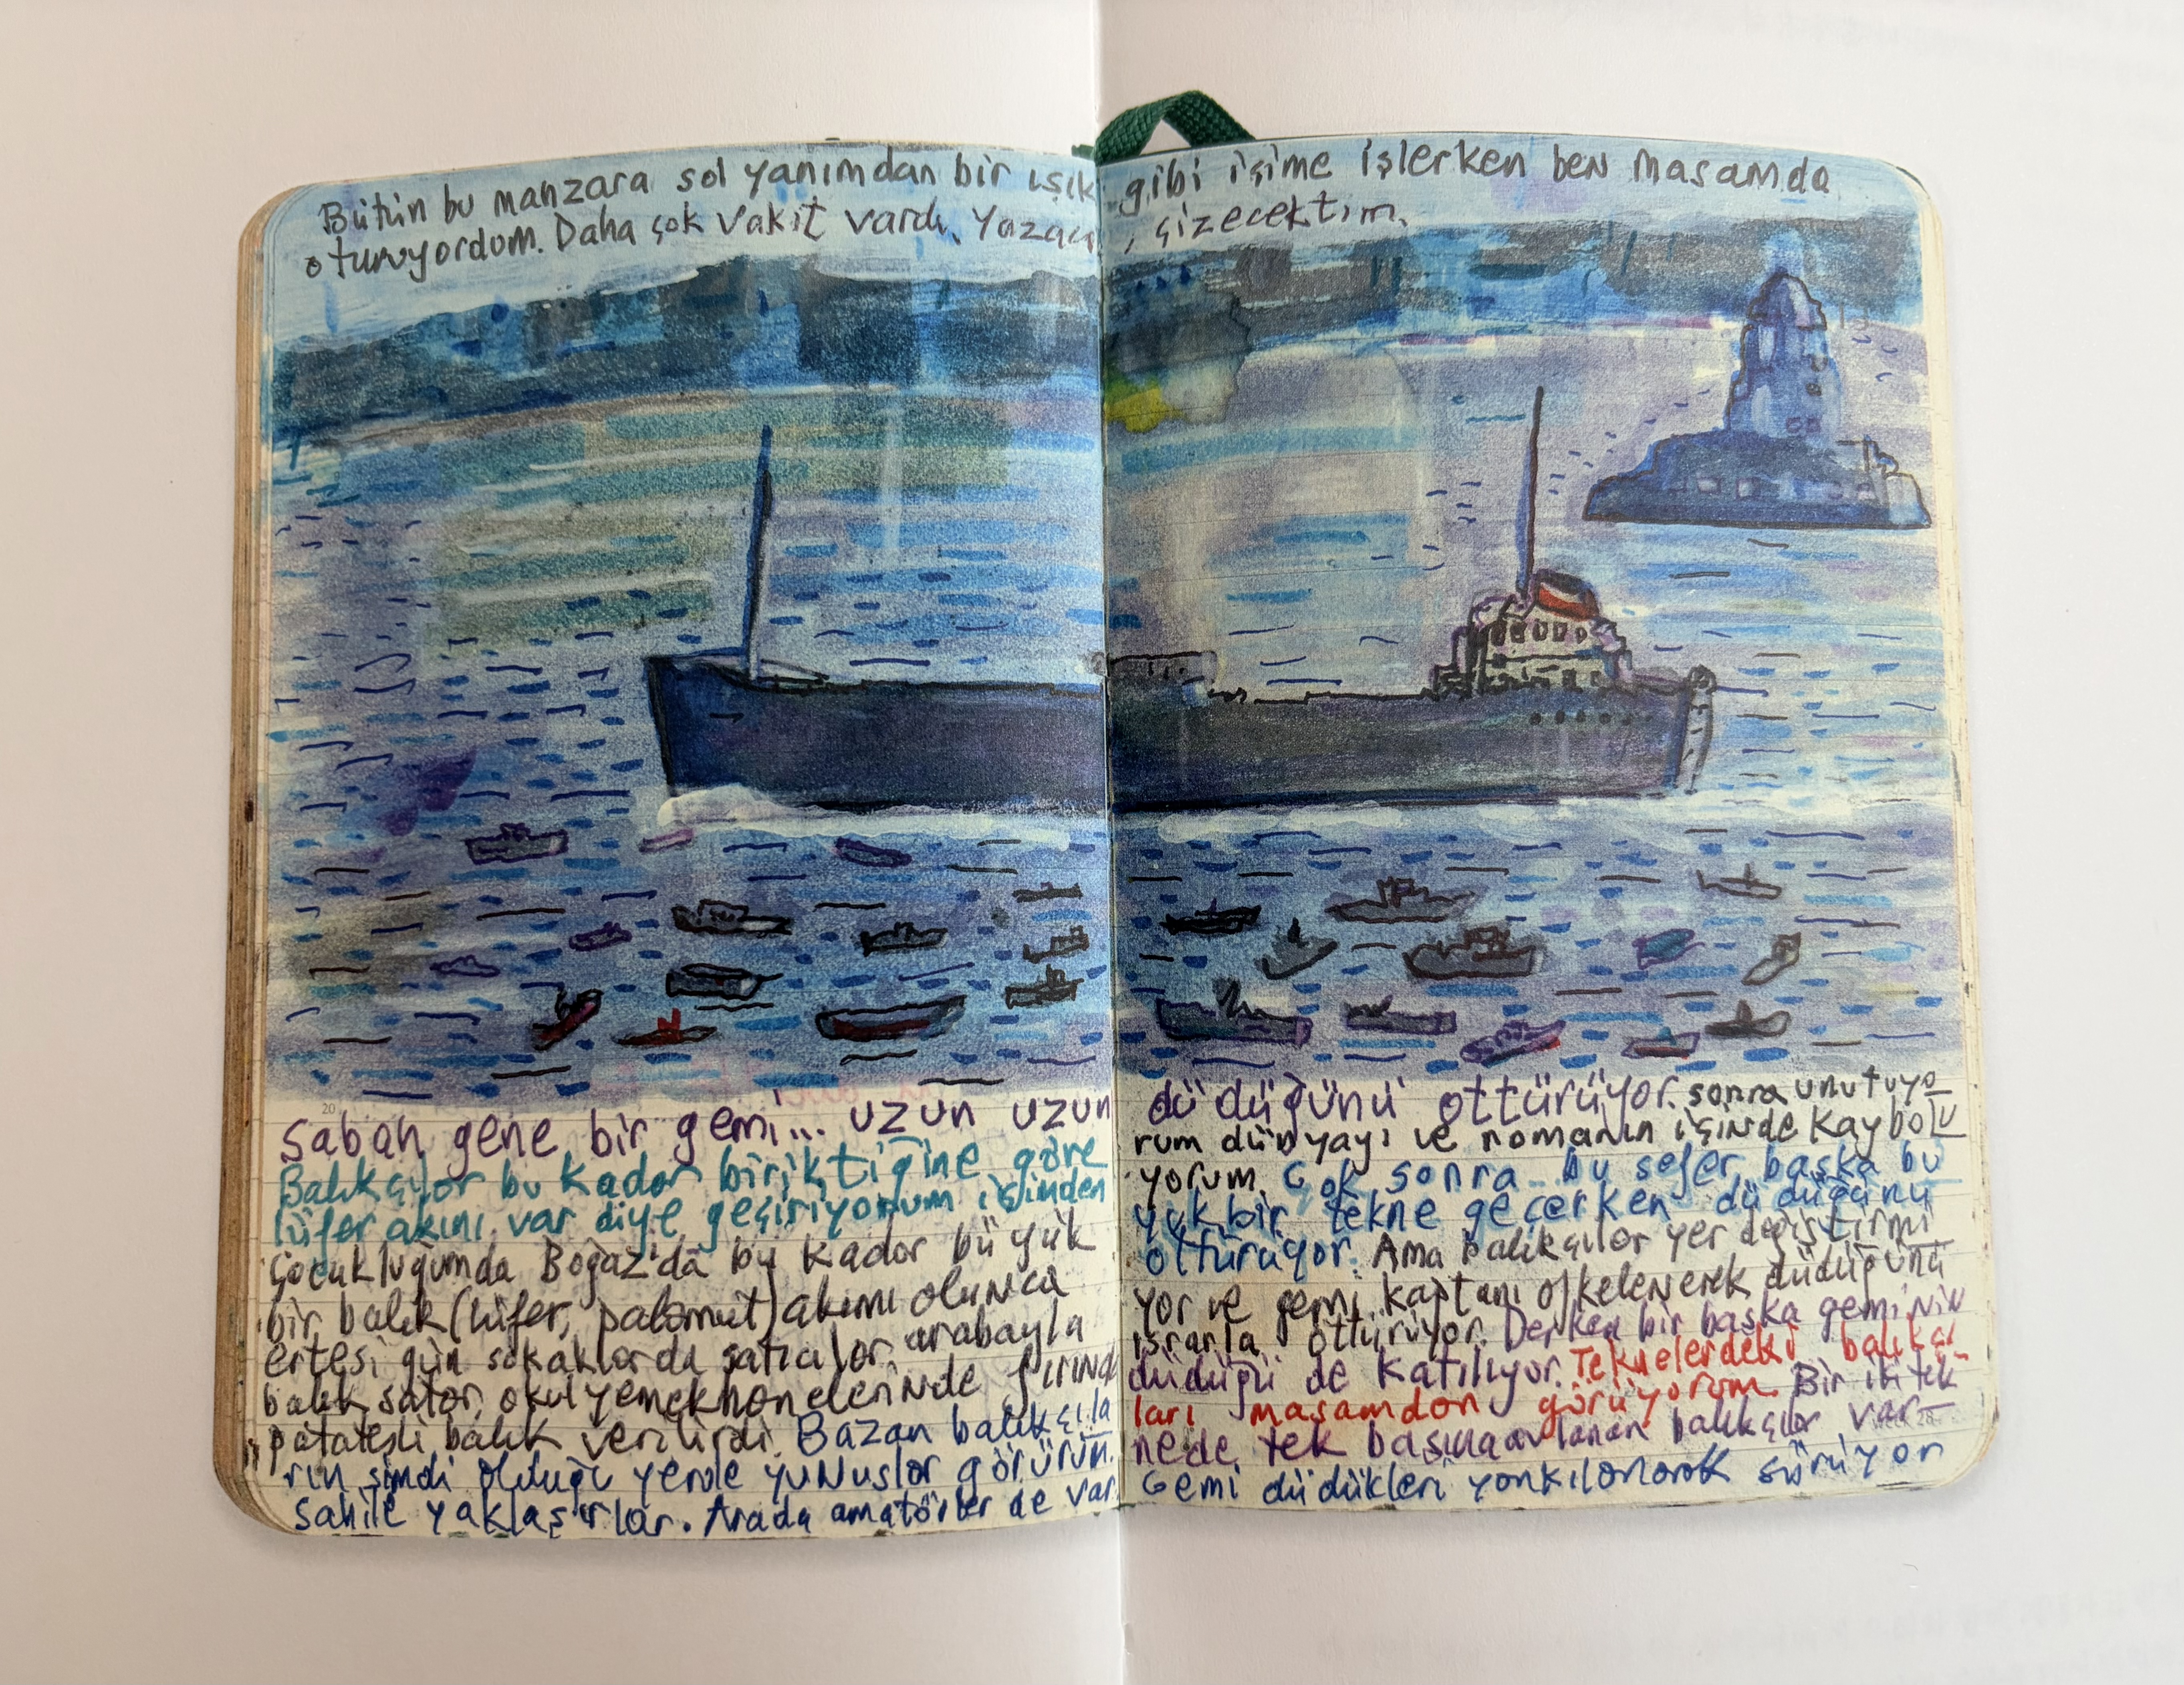 Bütün bu manzara sol yanımdan bir ışık gibi içime işlerken ben masamda
oturuyordum. Daha çok vakit vardı. çizecektim.
20
Sabah gene bir gemi... uzun uzun
Balıkçılar bu kadar biriktiğine göre
lüfer akını var diye geçiriyorum içimden
Çocukluğumda Boğaz'da bu kadar büyük
bir balık (lüfer, palamut) akını olunca
ertesi gün sokaklarda satıcılar arabayla
balık satar, okul yemekhanelerinde fırında
patatesli balık verilirdi. Bazan balıkçıla
rın şimdi olduğu yerde yunuslar görürüm.
sahile yaklaşırlar. Arada amatörler de var.
düdüğünü öttürüyor. sonra unutuyo
rum dünyayı ve romanın içinde kaybolu
yorum. Çok sonra.. bu sefer başka bü
yük bir tekne geçerken düdüğünü
öttürüyor. Ama balıkçılar yer değiştirmi
yor ve gemi kaptanı öfkelenerek düdüğünü
ısrarla öttürüyor. Derken bir başka geminin
düdüğü de katılıyor. Teknelerdeki balıkçı
ları masamdan görüyorum. Bir iki tek
nede tek başına avlanan balıkçılar var
Gemi düdükleri yankılanarak sürüyor